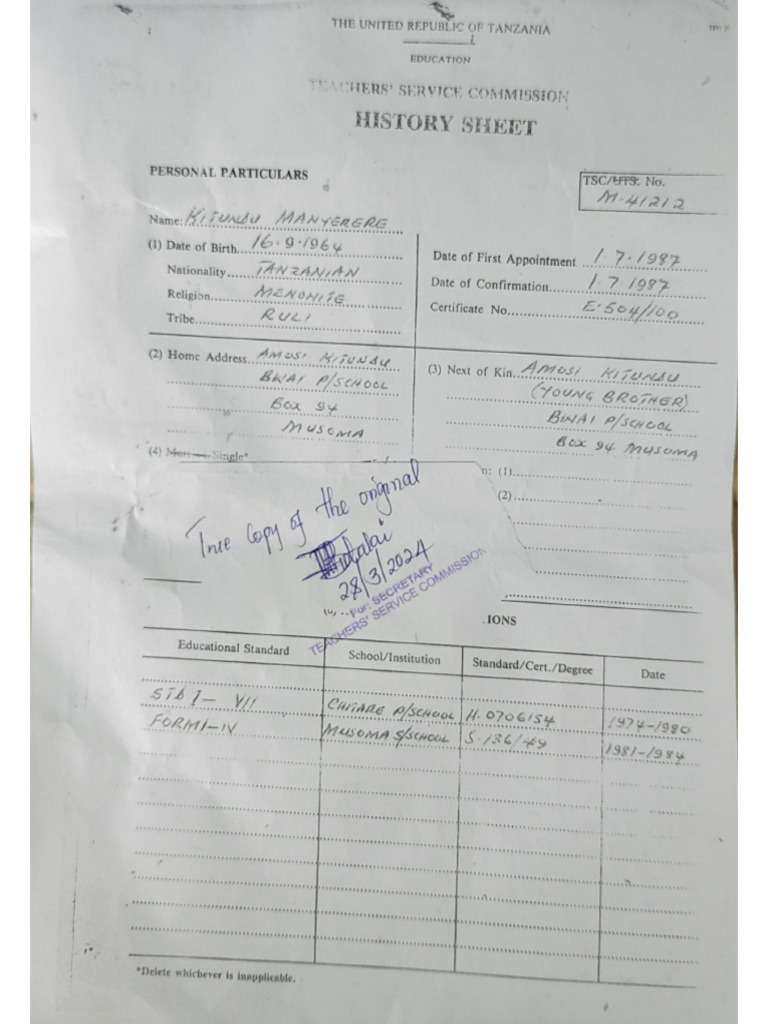 THE UNITED REPUBLIC OF TANZANIA
EDUCATION
TEACHERS' SERVICE COMMISSION
HISTORY SHEET
PERSONAL PARTICULARS
TSC/UTS. No.
M-41212
Name: KITUNDU MANYERERE
(1) Date of Birth 16.9.1964
Nationality TANZANIAN
Religion MENONITE
Tribe RULI
Date of First Appointment 1.7.1987
Date of Confirmation 1.7.1987
Certificate No. E.504/100
(2) Home Address. AMOSI KITUNDU
BWAI P/SCHOOL
BOX 94
MUSOMA
(3) Next of Kin. AMOSI KITUNDU
(YOUNG BROTHER)
BWAI P/SCHOOL
BOX 94 MUSOMA
(4) Single*
n: (1)
(2)
True Copy of the original
28/3/2024
For: SECRETARY
TEACHERS' SERVICE COMMISSION
IONS
Educational Standard School/Institution Standard/Cert./Degree Date
STD I - VII CHITARE P/SCHOOL H.0706154 1974-1980
FORM I-IV MUSOMA S/SCHOOL S.136/49 1981-1984
*Delete whichever is inapplicable.